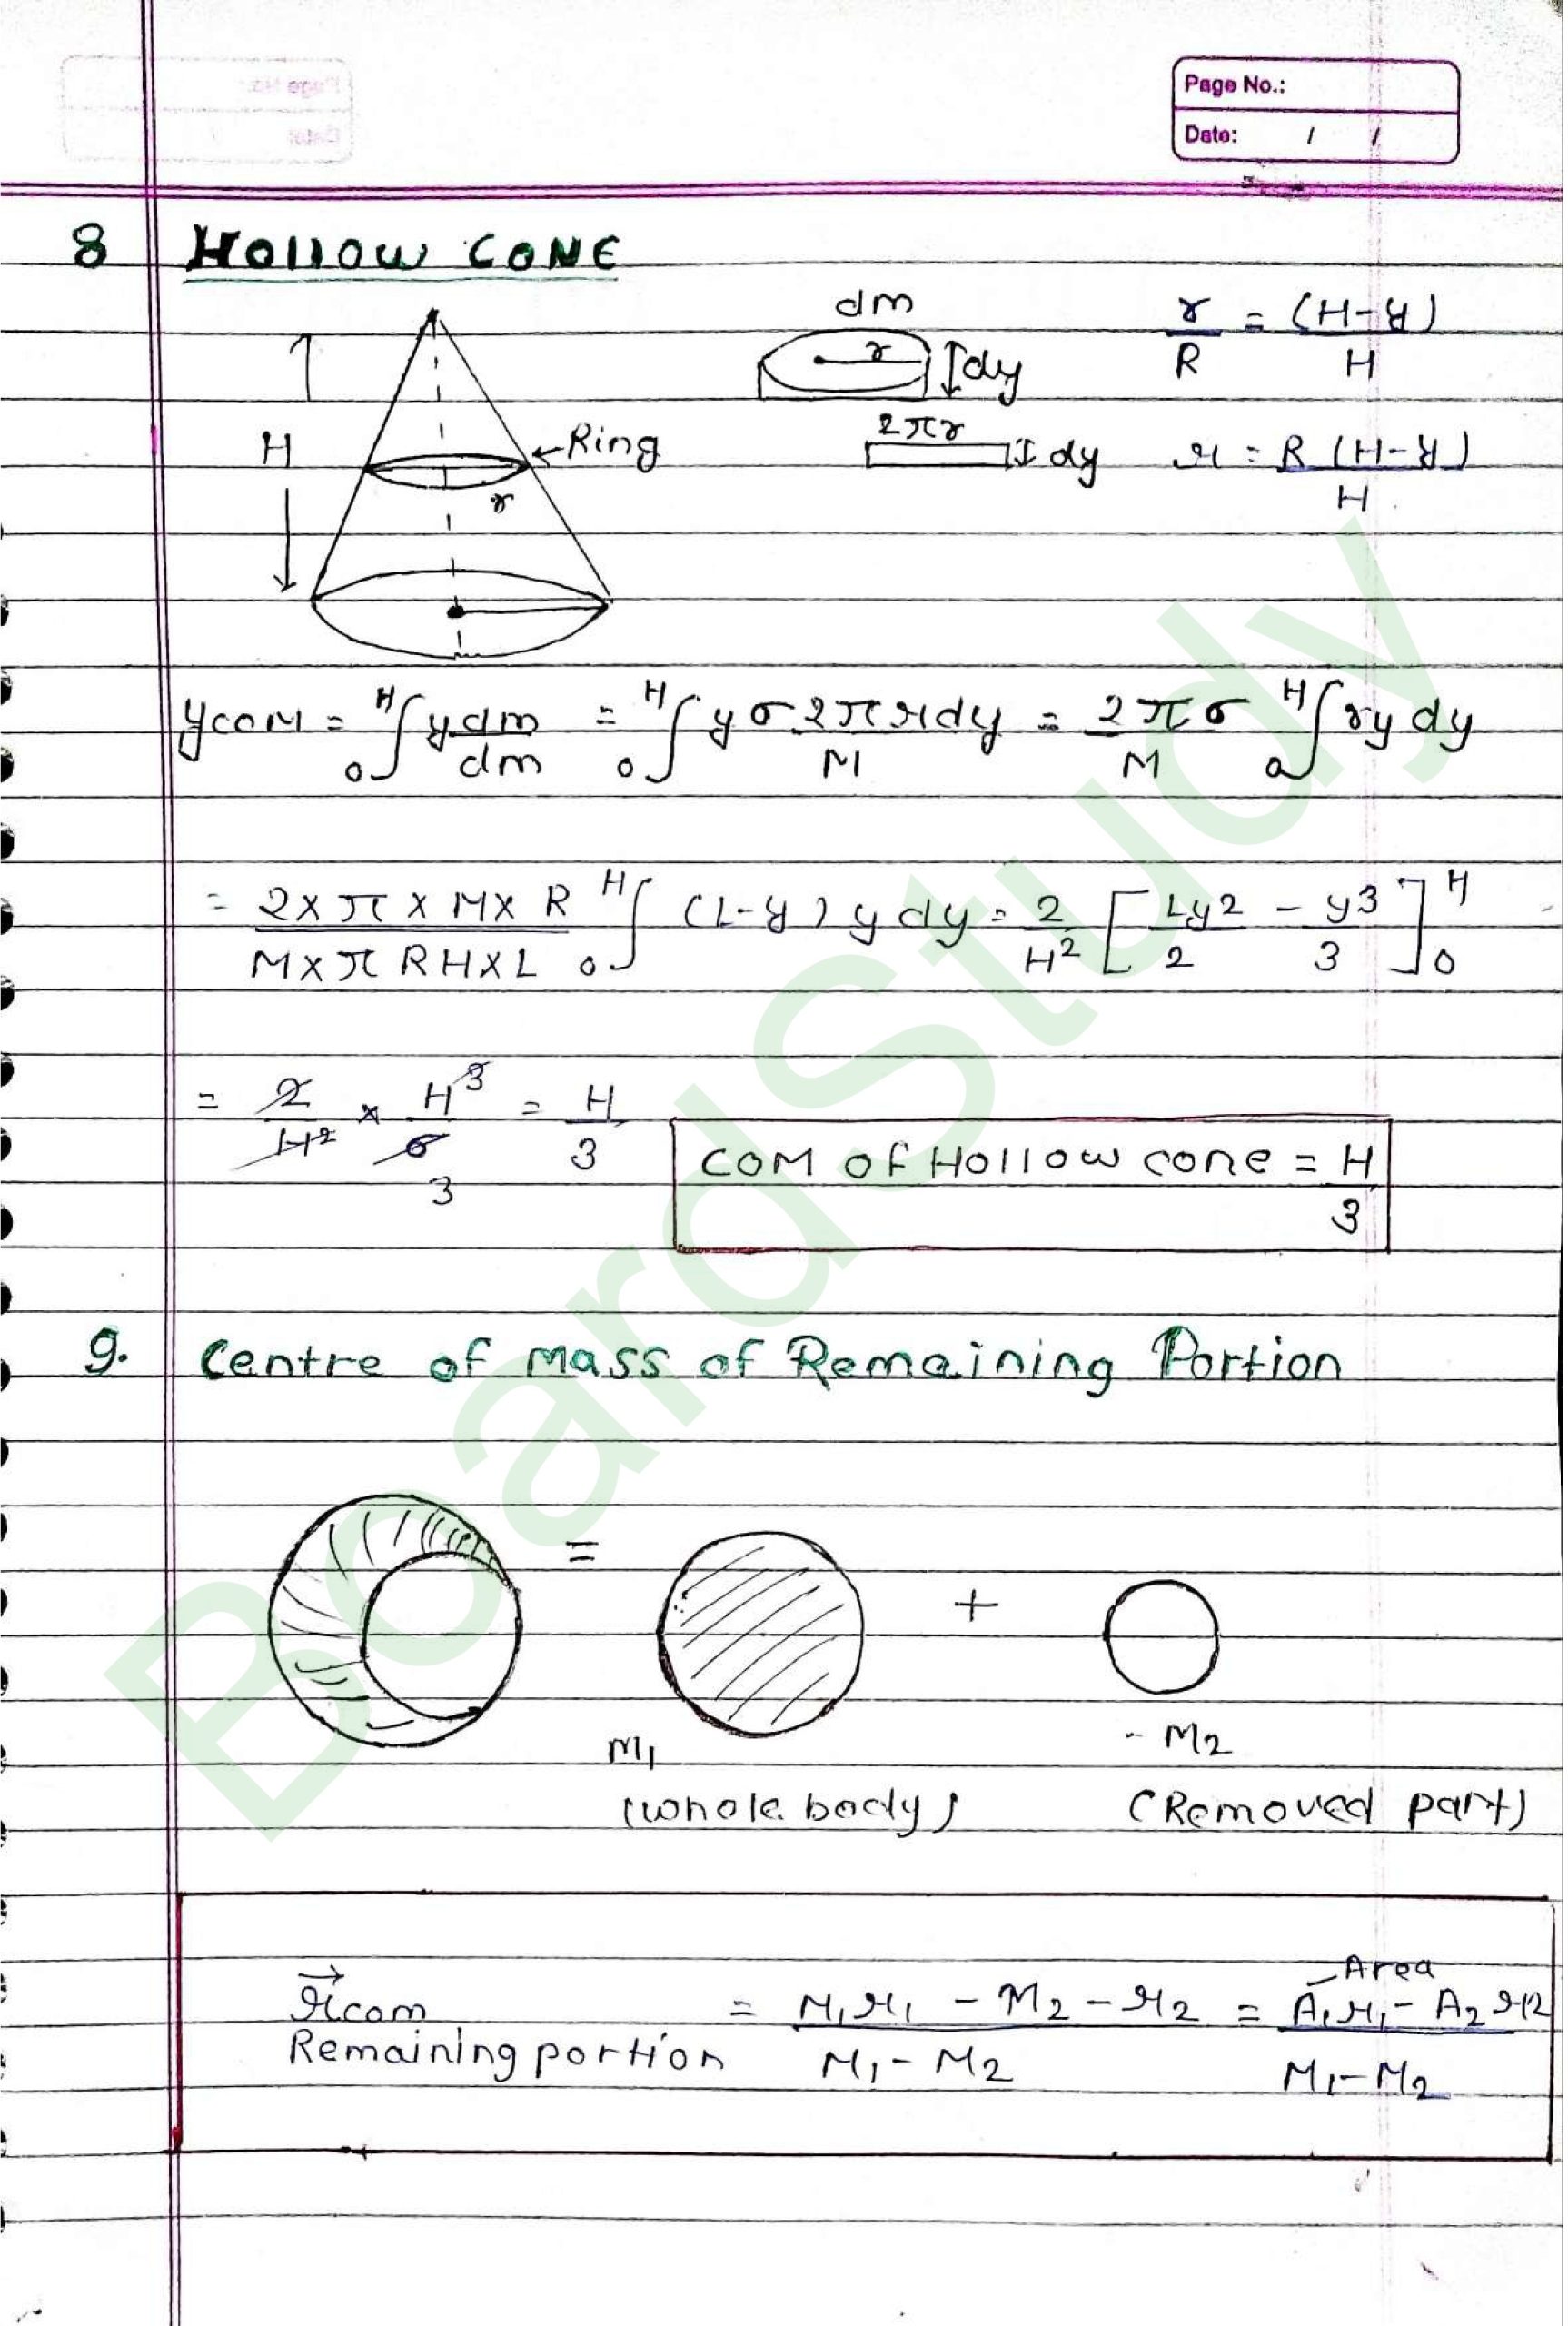 Page No.:
Date: / /
8 Hollow CONE
dm
r/R = (H-y)/H
r
dy
H
Ring
2πr
dy
r = R (H-y)/H
r
ycom = 0∫H y dm/dm = 0∫H yσ2πrdy/M = 2πσ/M 0∫H ry dy
= 2×π×M×R/M×πRH×L 0∫H (L-y) y dy = 2/H² [Ly2/2 - y3/3]H0
= 2/H² × H³/6 3 = H/3
COM OF Hollow cone = H/3
9. Centre of mass of Remaining Portion
=
+
M1
- M2
(whole body)
(Removed part)
r⃗com Remaining portion = M1r1 - M2 - r2/M1 - M2 = A1r1 - A2r2/M1 - M2
Area
BoardStudy